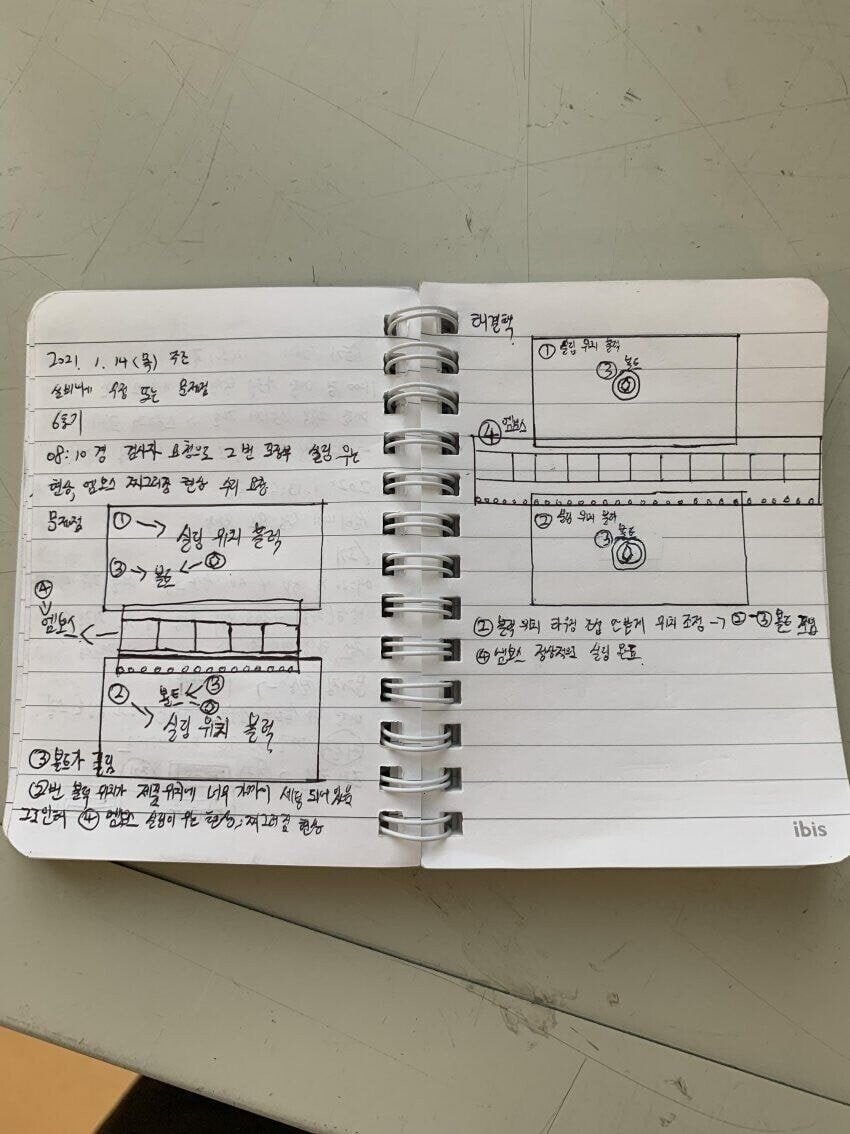 2021. 1. 14 (목) 주간
설비니게 수정 또는 문제점
6호기
08:10 경 검사자 요청으로 2번 포장부 실링 우는
현상, 엠보스 찌그러짐 현상 수리 요청
문제점
① → 실링 위치 블럭
③ → 볼트 ←
④
엠보스 ←
② 볼트 ← ③
→ 실링 위치 블럭
③ 볼트가 풀림
②번 블럭 위치가 제품위치에 너무 가까이 세팅 되어 있음
그로인해 ④ 엠보스 실링이 우는 현상, 찌그러짐 현상
해결책
① 실링 위치 블럭
③ 볼트
④ 엠보스
② 실링 위치 블럭
③ 볼트
② 블럭 위치 위치 조정 → ② - ③ 볼트 조임
④ 엠보스 정상적인 실링 완료
ibis